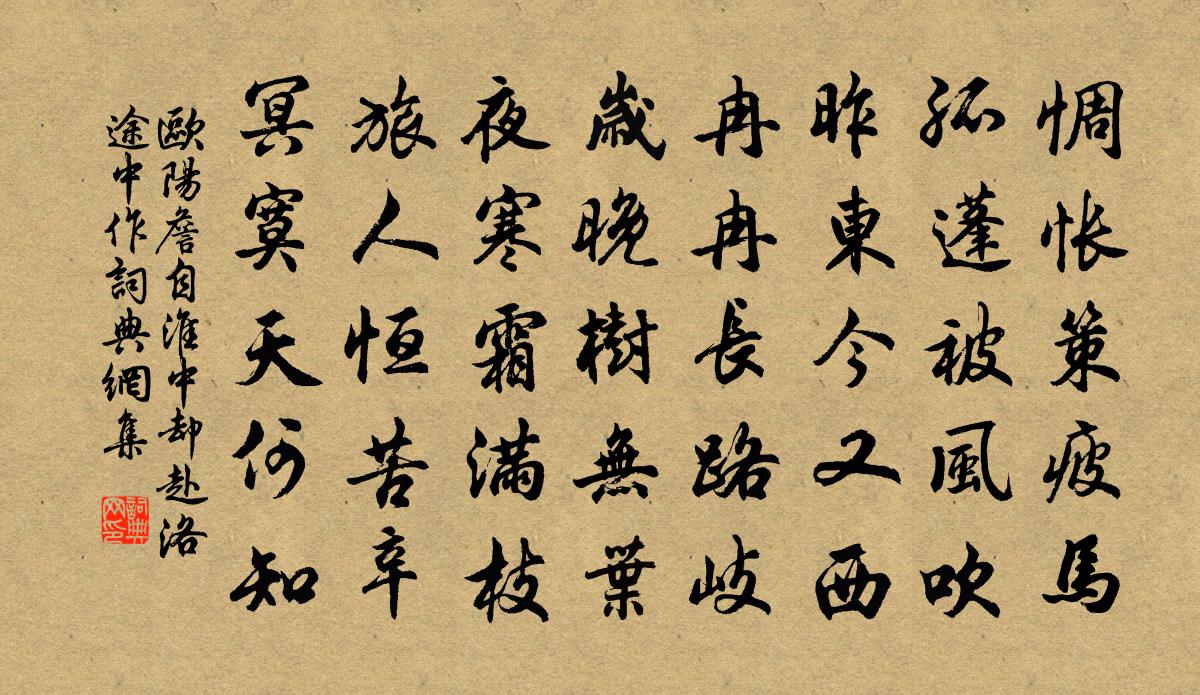 惆悵策疲馬
孤蓬被風吹
昨東今又西
冉冉長路岐
歲晚樹無葉
夜寒霜滿枝
旅人恒苦辛
冥寞天何知
歐陽詹自淮中却赴洛
途中作詞典網集
詞典
网印